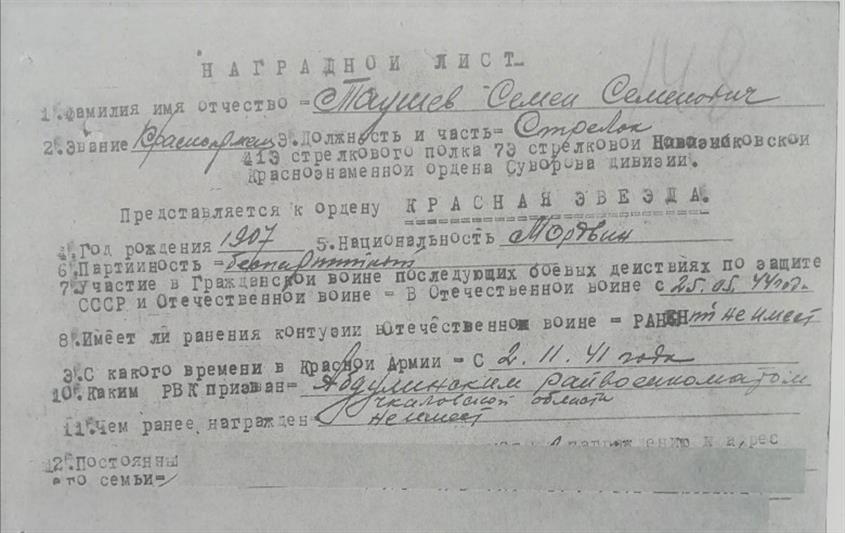 НАГРАДНОЙ ЛИСТ
148
1. Фамилия имя отчество = Таушев Семен Семенович
2. Звание Красноармеец 3. Должность и часть = Стрелок
413 стрелкового полка 73 стрелковой Новозыбковской
Краснознаменной ордена Суворова дивизии.
Представляется к ордену КРАСНАЯ ЗВЕЗДА.
4. Год рождения 1907 5. Национальность Мордвин
6. Партийность = беспартийный
7. Участие в Гражданской войне последующих боевых действиях по защите
СССР и Отечественной войне = В Отечественной войне с 25.05.44 года
8. Имеет ли ранения контузии в Отечественной войне = РАНЕНИЙ не имеет
9. С какого времени в Красной Армии = С 2.11.41 года
10. Каким РВК призван = Абдулинским райвоенкоматом
Чкаловской области
11. Чем ранее награжден = не имеет
12. Постоянны
его семьи =